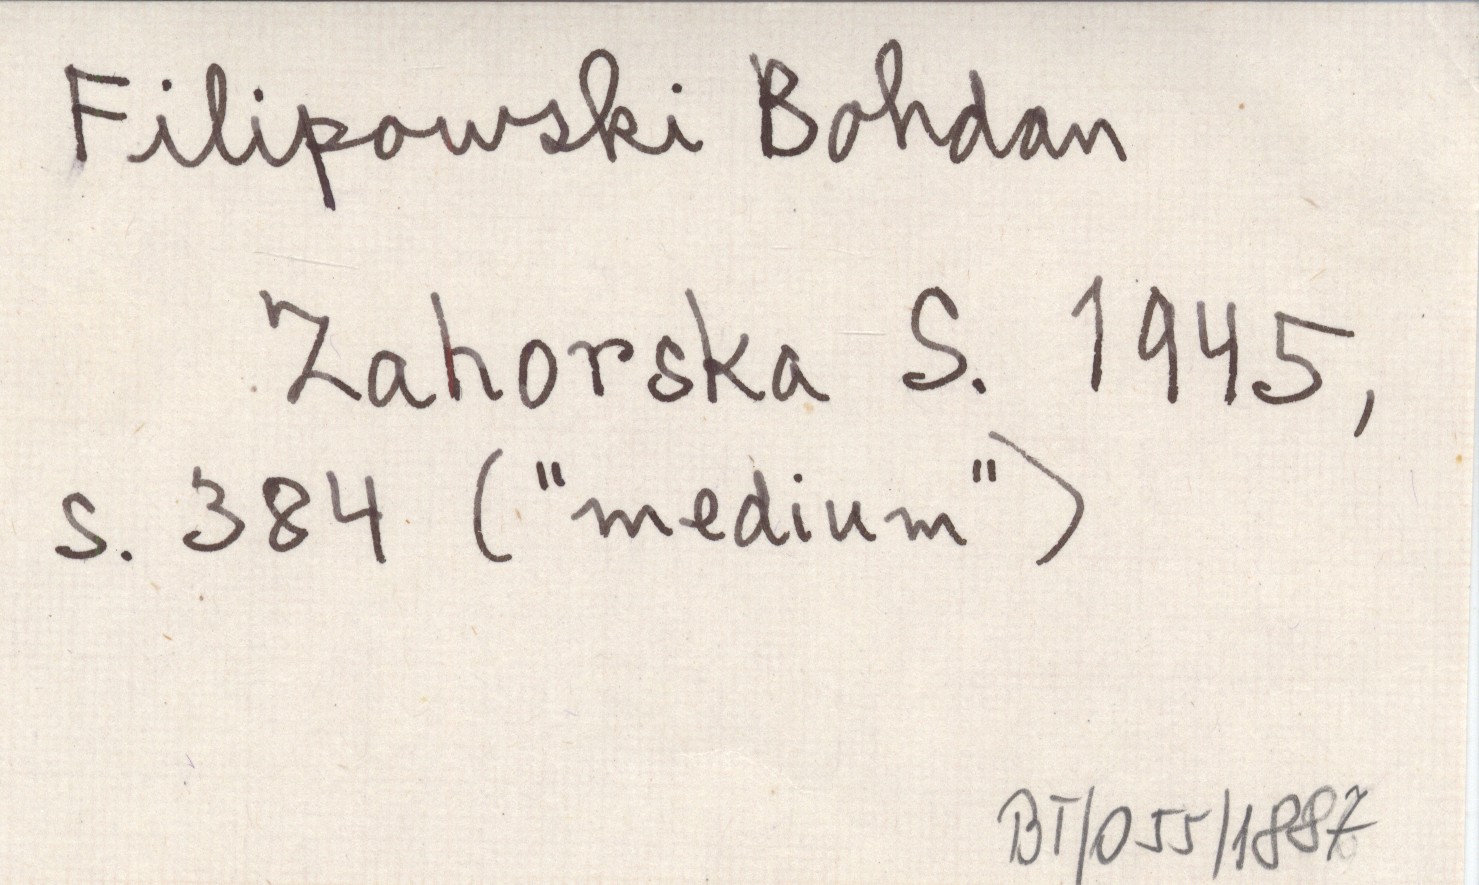 Filipowski Bohdan
Zahorska S. 1945,
s. 384 ("medium")
BT/055/1887